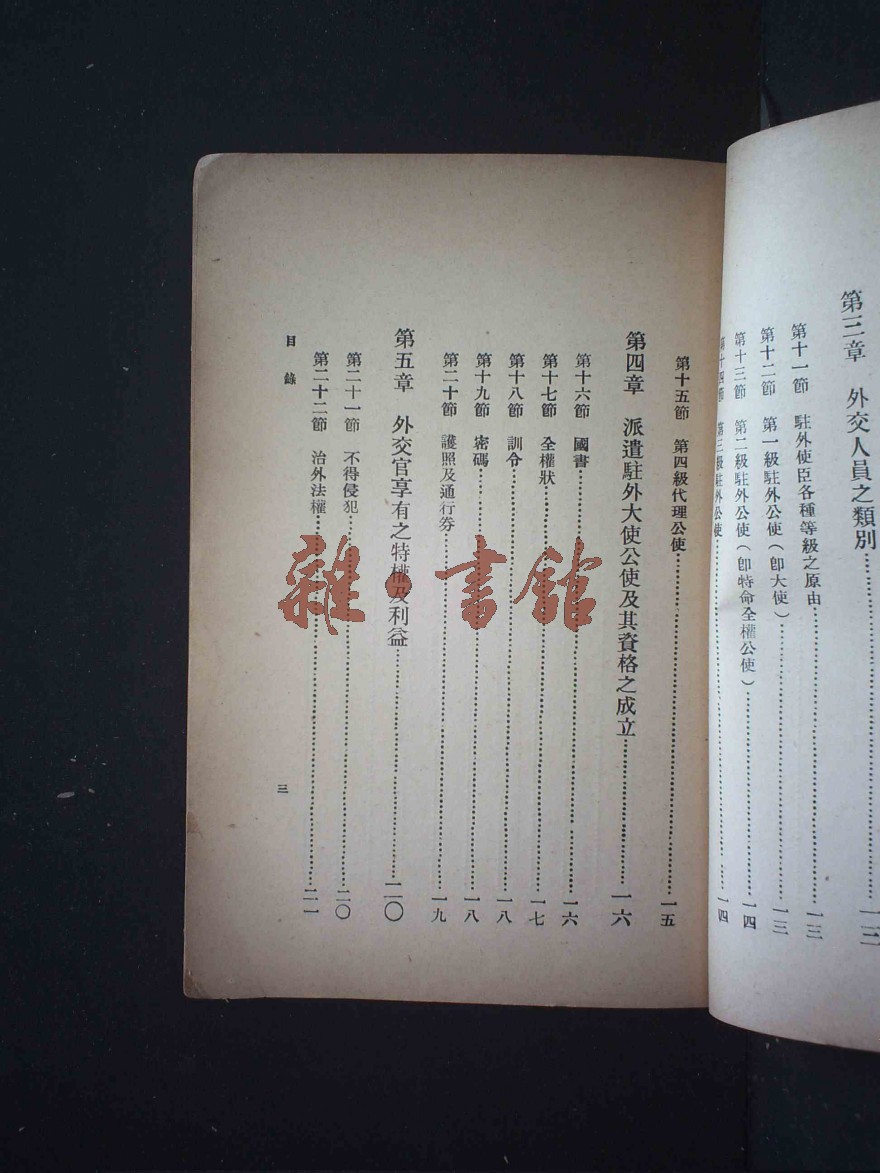 第三章　外交人員之類別……一三
第十一節　駐外使臣各種等級之原由……一三
第十二節　第一級駐外公使(卽大使)……一三
第十三節　第二級駐外公使(卽特命全權公使)……一四
第十四節　第三級駐外公使……一四
第十五節　第四級代理公使……一五
第四章　派遣駐外大使公使及其資格之成立……一六
第十六節　國書……一六
第十七節　全權狀……一七
第十八節　訓令……一八
第十九節　密碼……一八
第二十節　護照及通行券……一九
第五章　外交官享有之特權及利益……二〇
第二十一節　不得侵犯……二〇
第二十二節　治外法權……二一
目錄
三
雜·書館